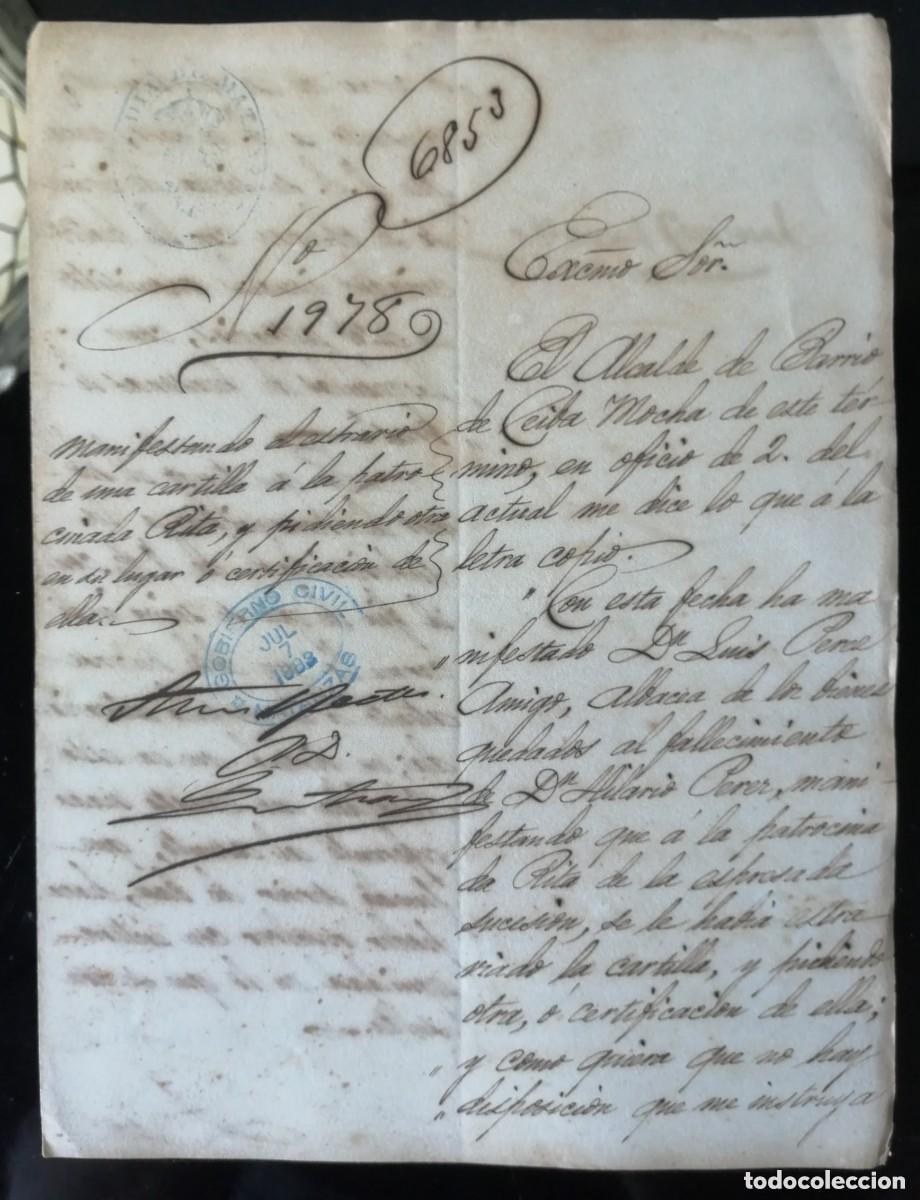 6853
No
1978
manifestando el estravio
de una cartilla á la patro-
cinada Rita, y pidiendo otra
en su lugar ó certificación de
ella.
GOBIERNO CIVIL
JUL
7
MATANZAS
P.D.
Excmo Sor.
El Alcalde de Barrio
de Ceiba Mocha de este tér-
mino, en oficio de 2. del
actual me dice lo que á la
letra copio.
"Con esta fecha ha ma
" nifestado Dn Luis Perez
Amigo, albacea de los bienes
quedados al fallecimiento
de Dn Hilario Perez, mani-
festando que á la patrocina
da Rita de la espresada
sucesión, se le habia estra-
viado la cartilla, y pidiendo
otra, ó certificación de ella;
" y como quiera que no hay
" disposicion que me instruya
todocoleccion